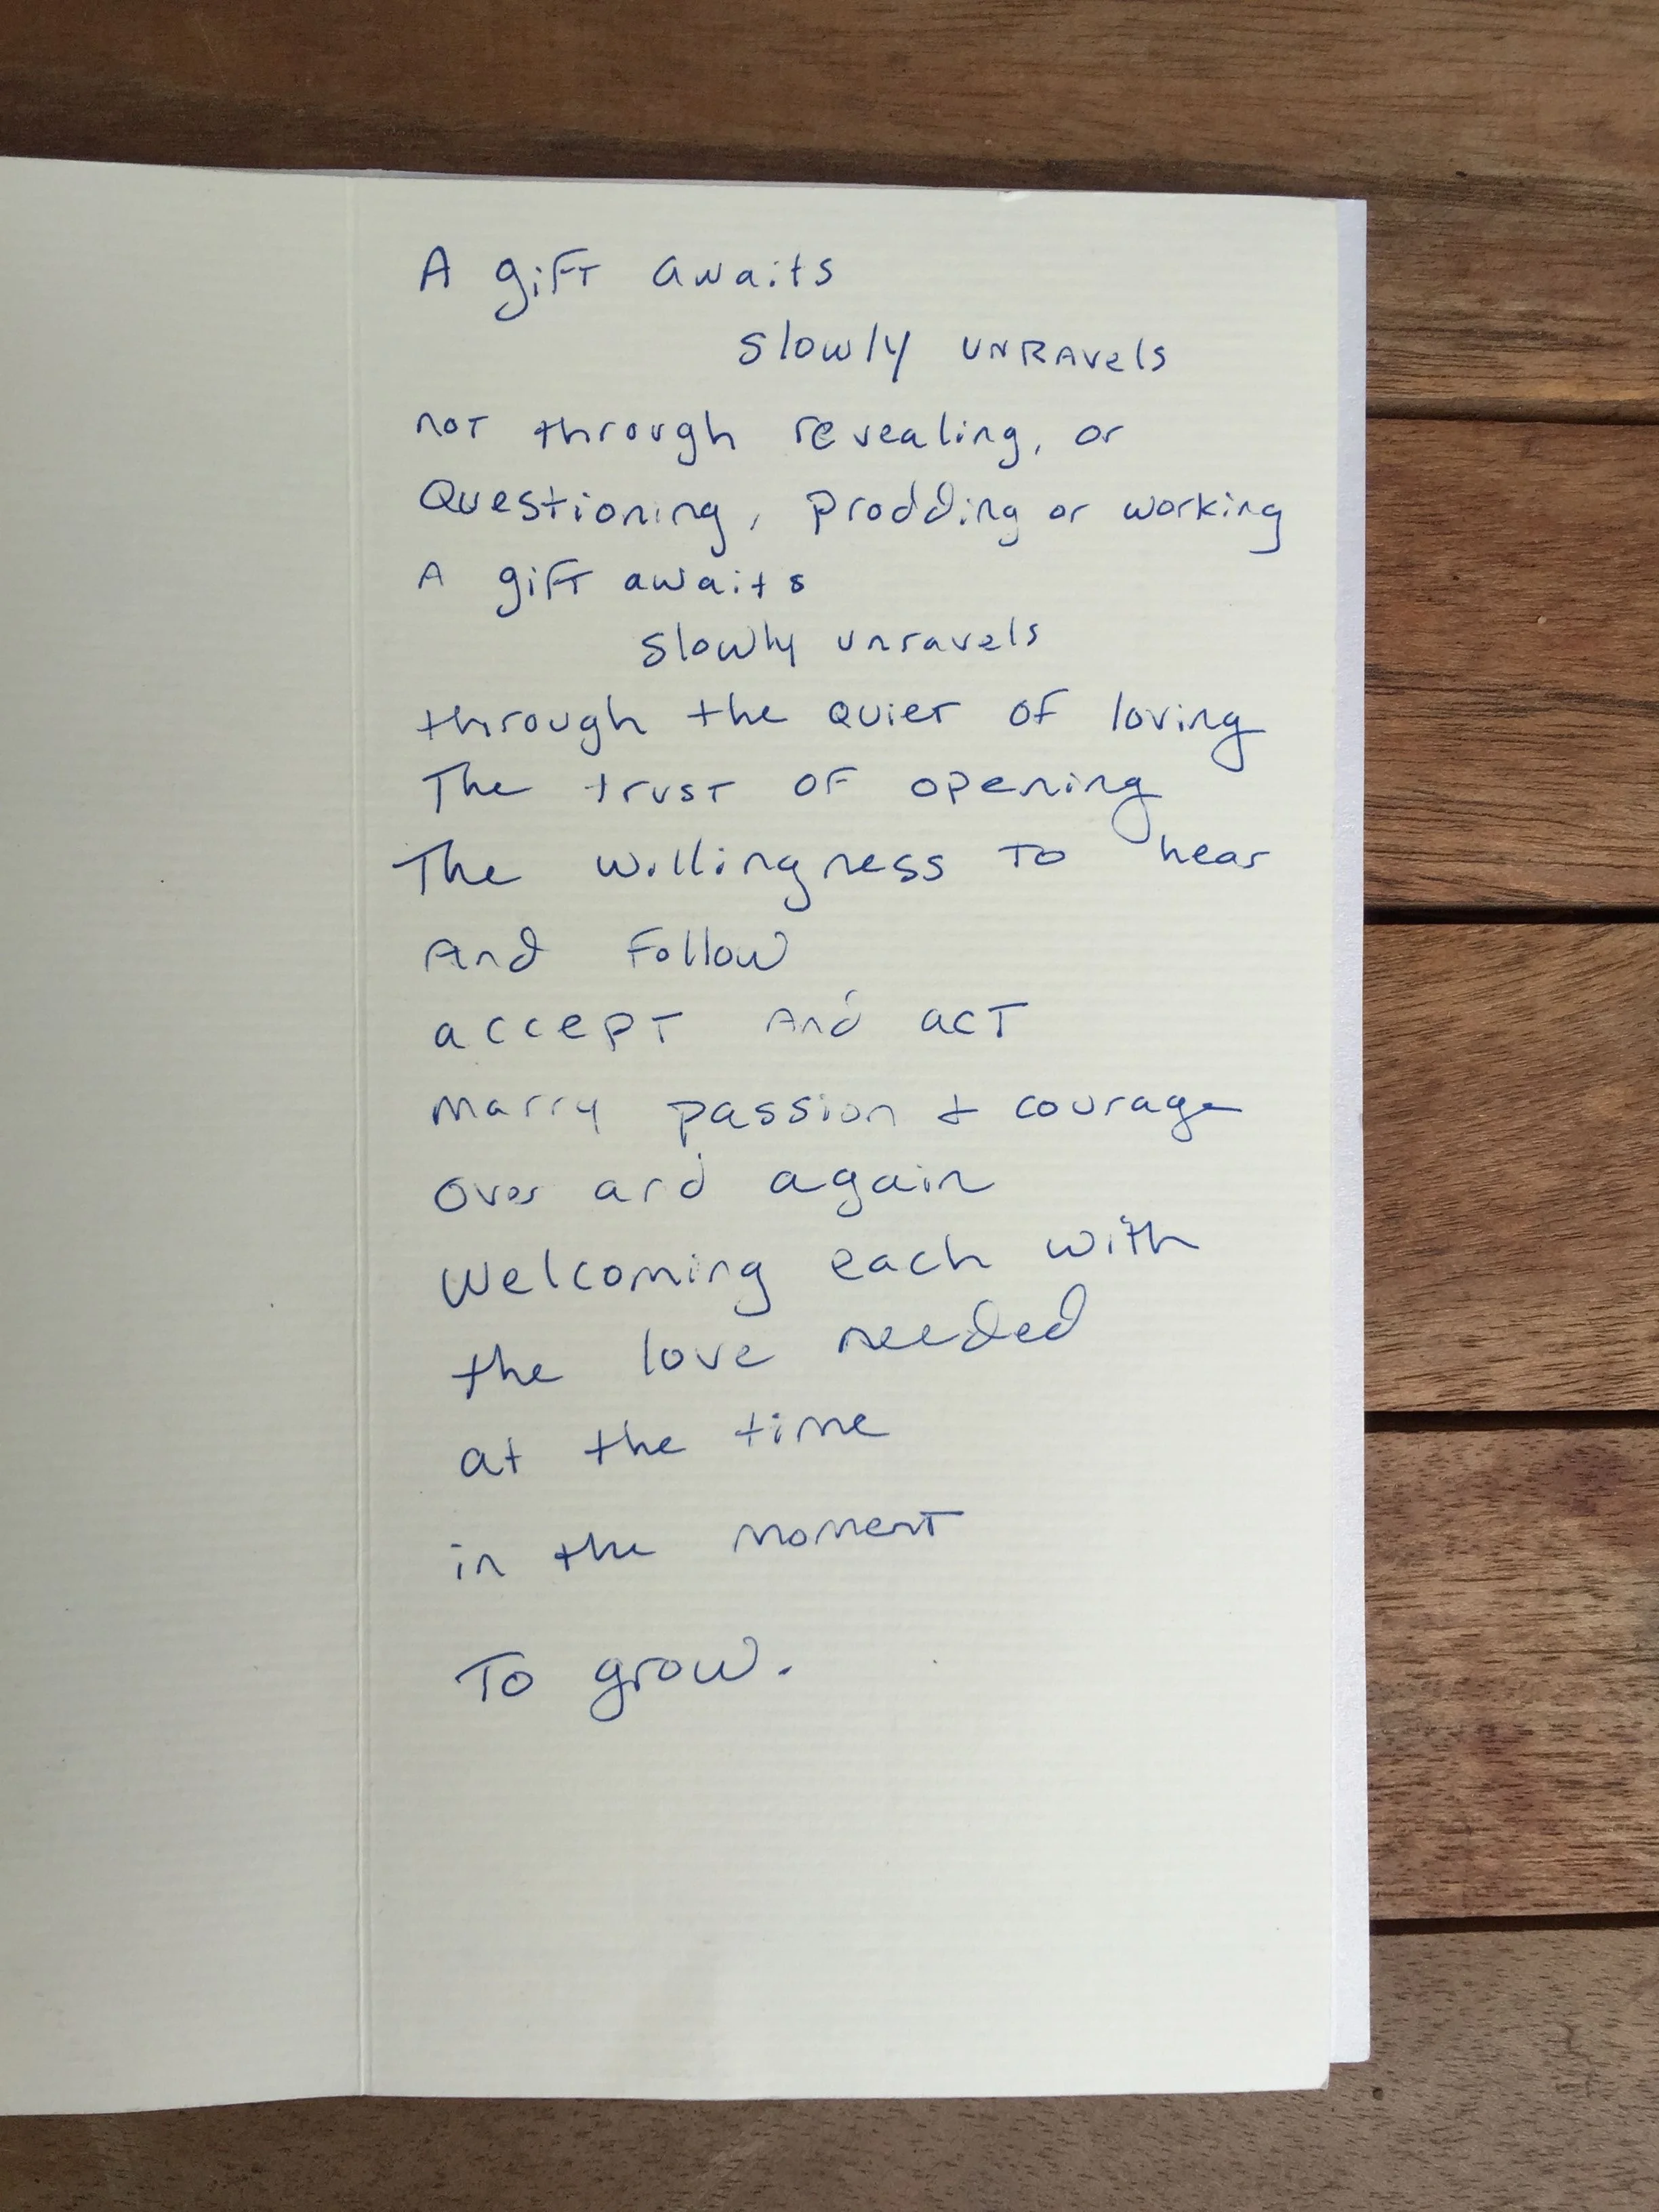 A gift awaits
slowly unravels
not through revealing, or
Questioning, prodding or working
A gift awaits
slowly unravels
through the quiet of loving
The trust of opening
The willingness to hear
And follow
accept And act
Marry passion & courage
Over and again
Welcoming each with
the love needed
at the time
in the moment
To grow.